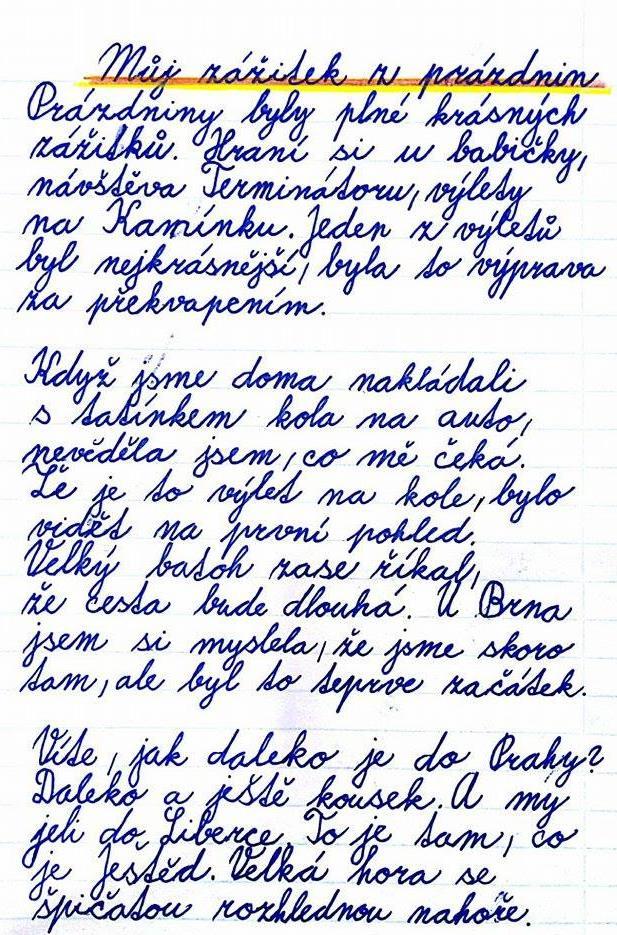 Můj zážitek z prázdnin
Prázdniny byly plné krásných
zážitků. Hraní si u babičky,
návštěva Terminátoru, výlety
na Kamínku. Jeden z výletů
byl nejkrásnější, byla to výprava
za překvapením.
Když jsme doma nakládali
s tatínkem kola na auto,
nevěděla jsem, co mě čeká.
Že je to výlet na kole, bylo
vidět na první pohled.
Velký batoh zase říkal,
že cesta bude dlouhá. U Brna
jsem si myslela, že jsme skoro
tam, ale byl to teprve začátek.
Víte, jak daleko je do Prahy?
Daleko a ještě kousek. A my
jeli do Liberce. To je tam, co
je Ještěd. Velká hora se
špičatou rozhlednou nahoře.